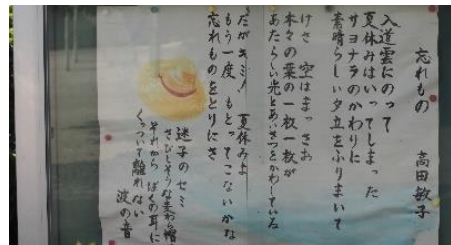 忘れもの　高田敏子
入道雲にのって
夏休みはいってしまった
サヨナラのかわりに
素晴らしい夕立をふりまいて
けさ　空はまっさお
木々の葉の一枚一枚が
あたらしい光とあいさつをかわしている
だがキミ！　夏休みよ
もう一度　もどってこないかな
忘れものをとりにさ
迷子のセミ
さびしそうな麦わら帽子
それから　ぼくの耳に
くっついて離れない
波の音